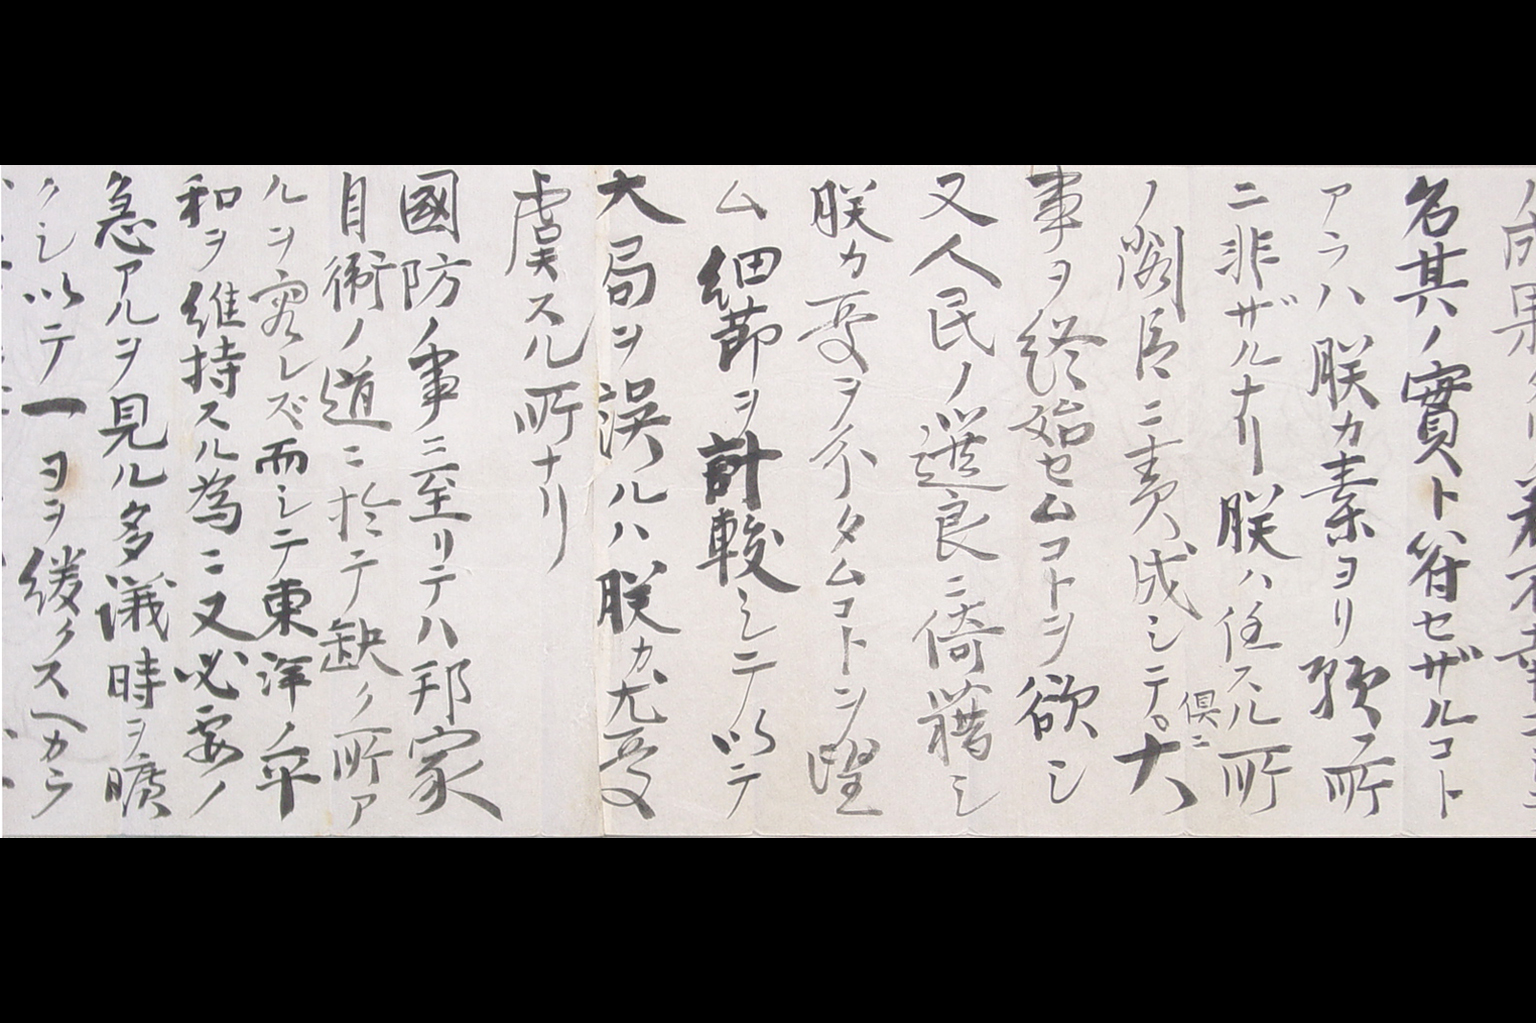 成果
名其ノ實ト符セザルコト
アラハ朕カ素ヨリ預フ所
ニ非ザルナリ朕ハ任スル所
ノ閣臣ニ責成シテ。倶ニ大
事ヲ終始セムコトヲ欲シ
又人民ノ選良ニ倚藉シ
朕カ憂ヲ分タムコトヲ望
ム細節ヲ計較シテ以テ
大局ヲ誤ルハ朕カ尤憂
虞スル所ナリ
國防ノ事ニ至リテハ邦家
自衛ノ道ニ於テ缺ク所ア
ルヲ容レズ而シテ東洋ノ平
和ヲ維持スル為ニ又必要ノ
急アルヲ見ル多議時ヲ曠
クシ以テ一日ヲ緩クスヘカラ